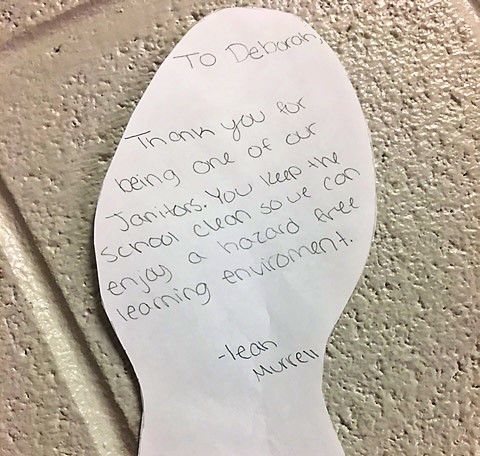 To Deborah,
Thank you for
being one of our
Janitors. You keep the
school clean so we can
enjoy a hazard free
learning enviroment.
-leah
Murrell